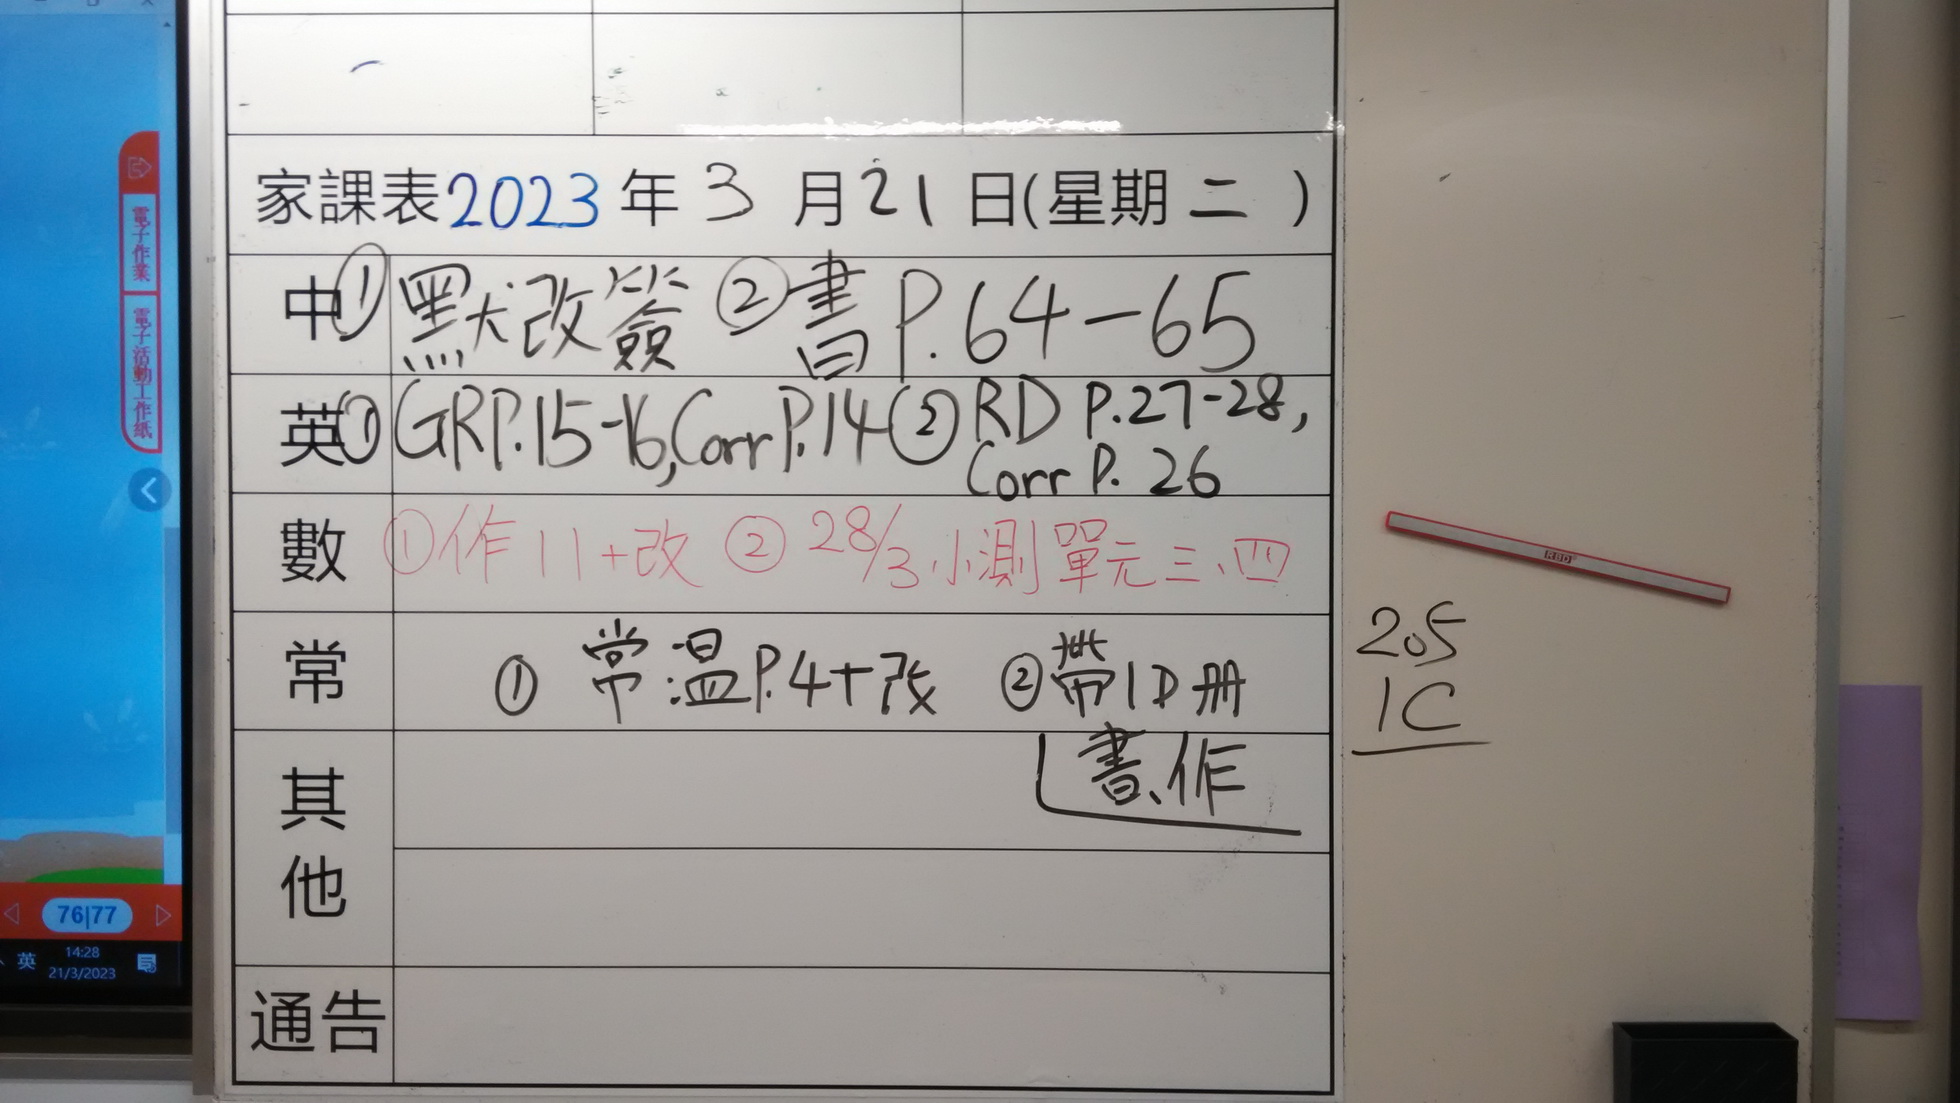 家課表2023年3月21日(星期二)
中 ①默改簽 ②書P.64-65
英 ①GRP.15-16,Corr P.14 ②RD P.27-28,
Corr P. 26
數 ①作11+改 ②28/3小測單元三、四
常 ①常温P.4+改 ②帶1D册
書、作
其他
通告
205
1C
RBD
電子作業
電子活動工作紙
76|77
英 14:28
21/3/2023